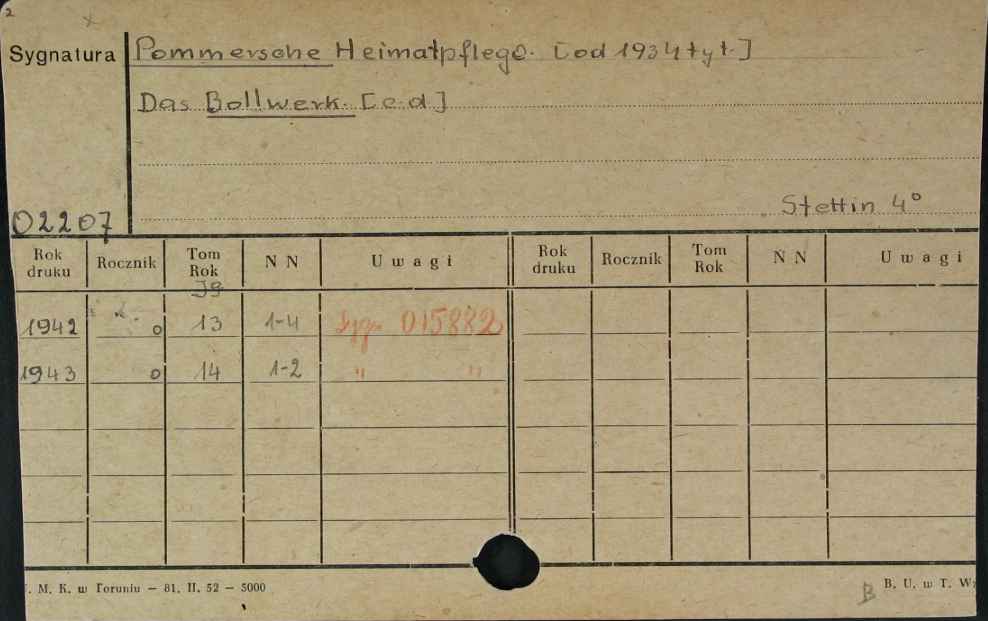 2
x
Sygnatura Pommersche Heimatpflege. [od 1934 tyt.]
Das Bollwerk. [c.d.]
Stettin 4°
02207
Rok druku Rocznik Tom Rok NN Uwagi Rok druku Rocznik Tom Rok NN Uwagi
Jg
1942 o 13 1-4 Sygn. 015882
1943 o 14 1-2 " "
. M. K. w Toruniu – 81. II. 52 – 5000
B B. U. w T. W